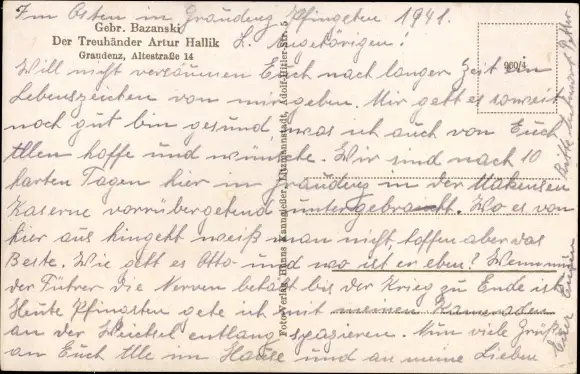 Im Osten in Graudenz Pfingsten 1941.
Gebr. Bazanski
Der Treuhänder Artur Hallik
Graudenz, Altestraße 14
L. Angehörigen!
960/4
Will nicht versäumen Euch nach langer Zeit ein
Lebenszeichen von mir geben. Mir geht es soweit
noch gut bin gesund, was ich auch von Euch
Allen hoffe und wünsche. Wir sind nach 10
harten Tagen hier in Graudenz in der Makensen
Kaserne vorrübergehend untergebracht. Wo es von
hier aus hingeht weiß man nicht, hoffen aber das
Beste. Wie geht es Otto und wo ist er eben? Wenn nur
der Führer die Nerven behält bis der Krieg zu Ende ist.
Heute Pfingsten gehe ich mit meinen Kameraden
an der Weichsel entlang spazieren. Nun viele Grüße
an Euch Alle im Hause und an meine Lieben
Fotoverlag Hanns Langlieder, Litzmannstadt, Adolf-Hitler-Str. 5
Bitte
Euer